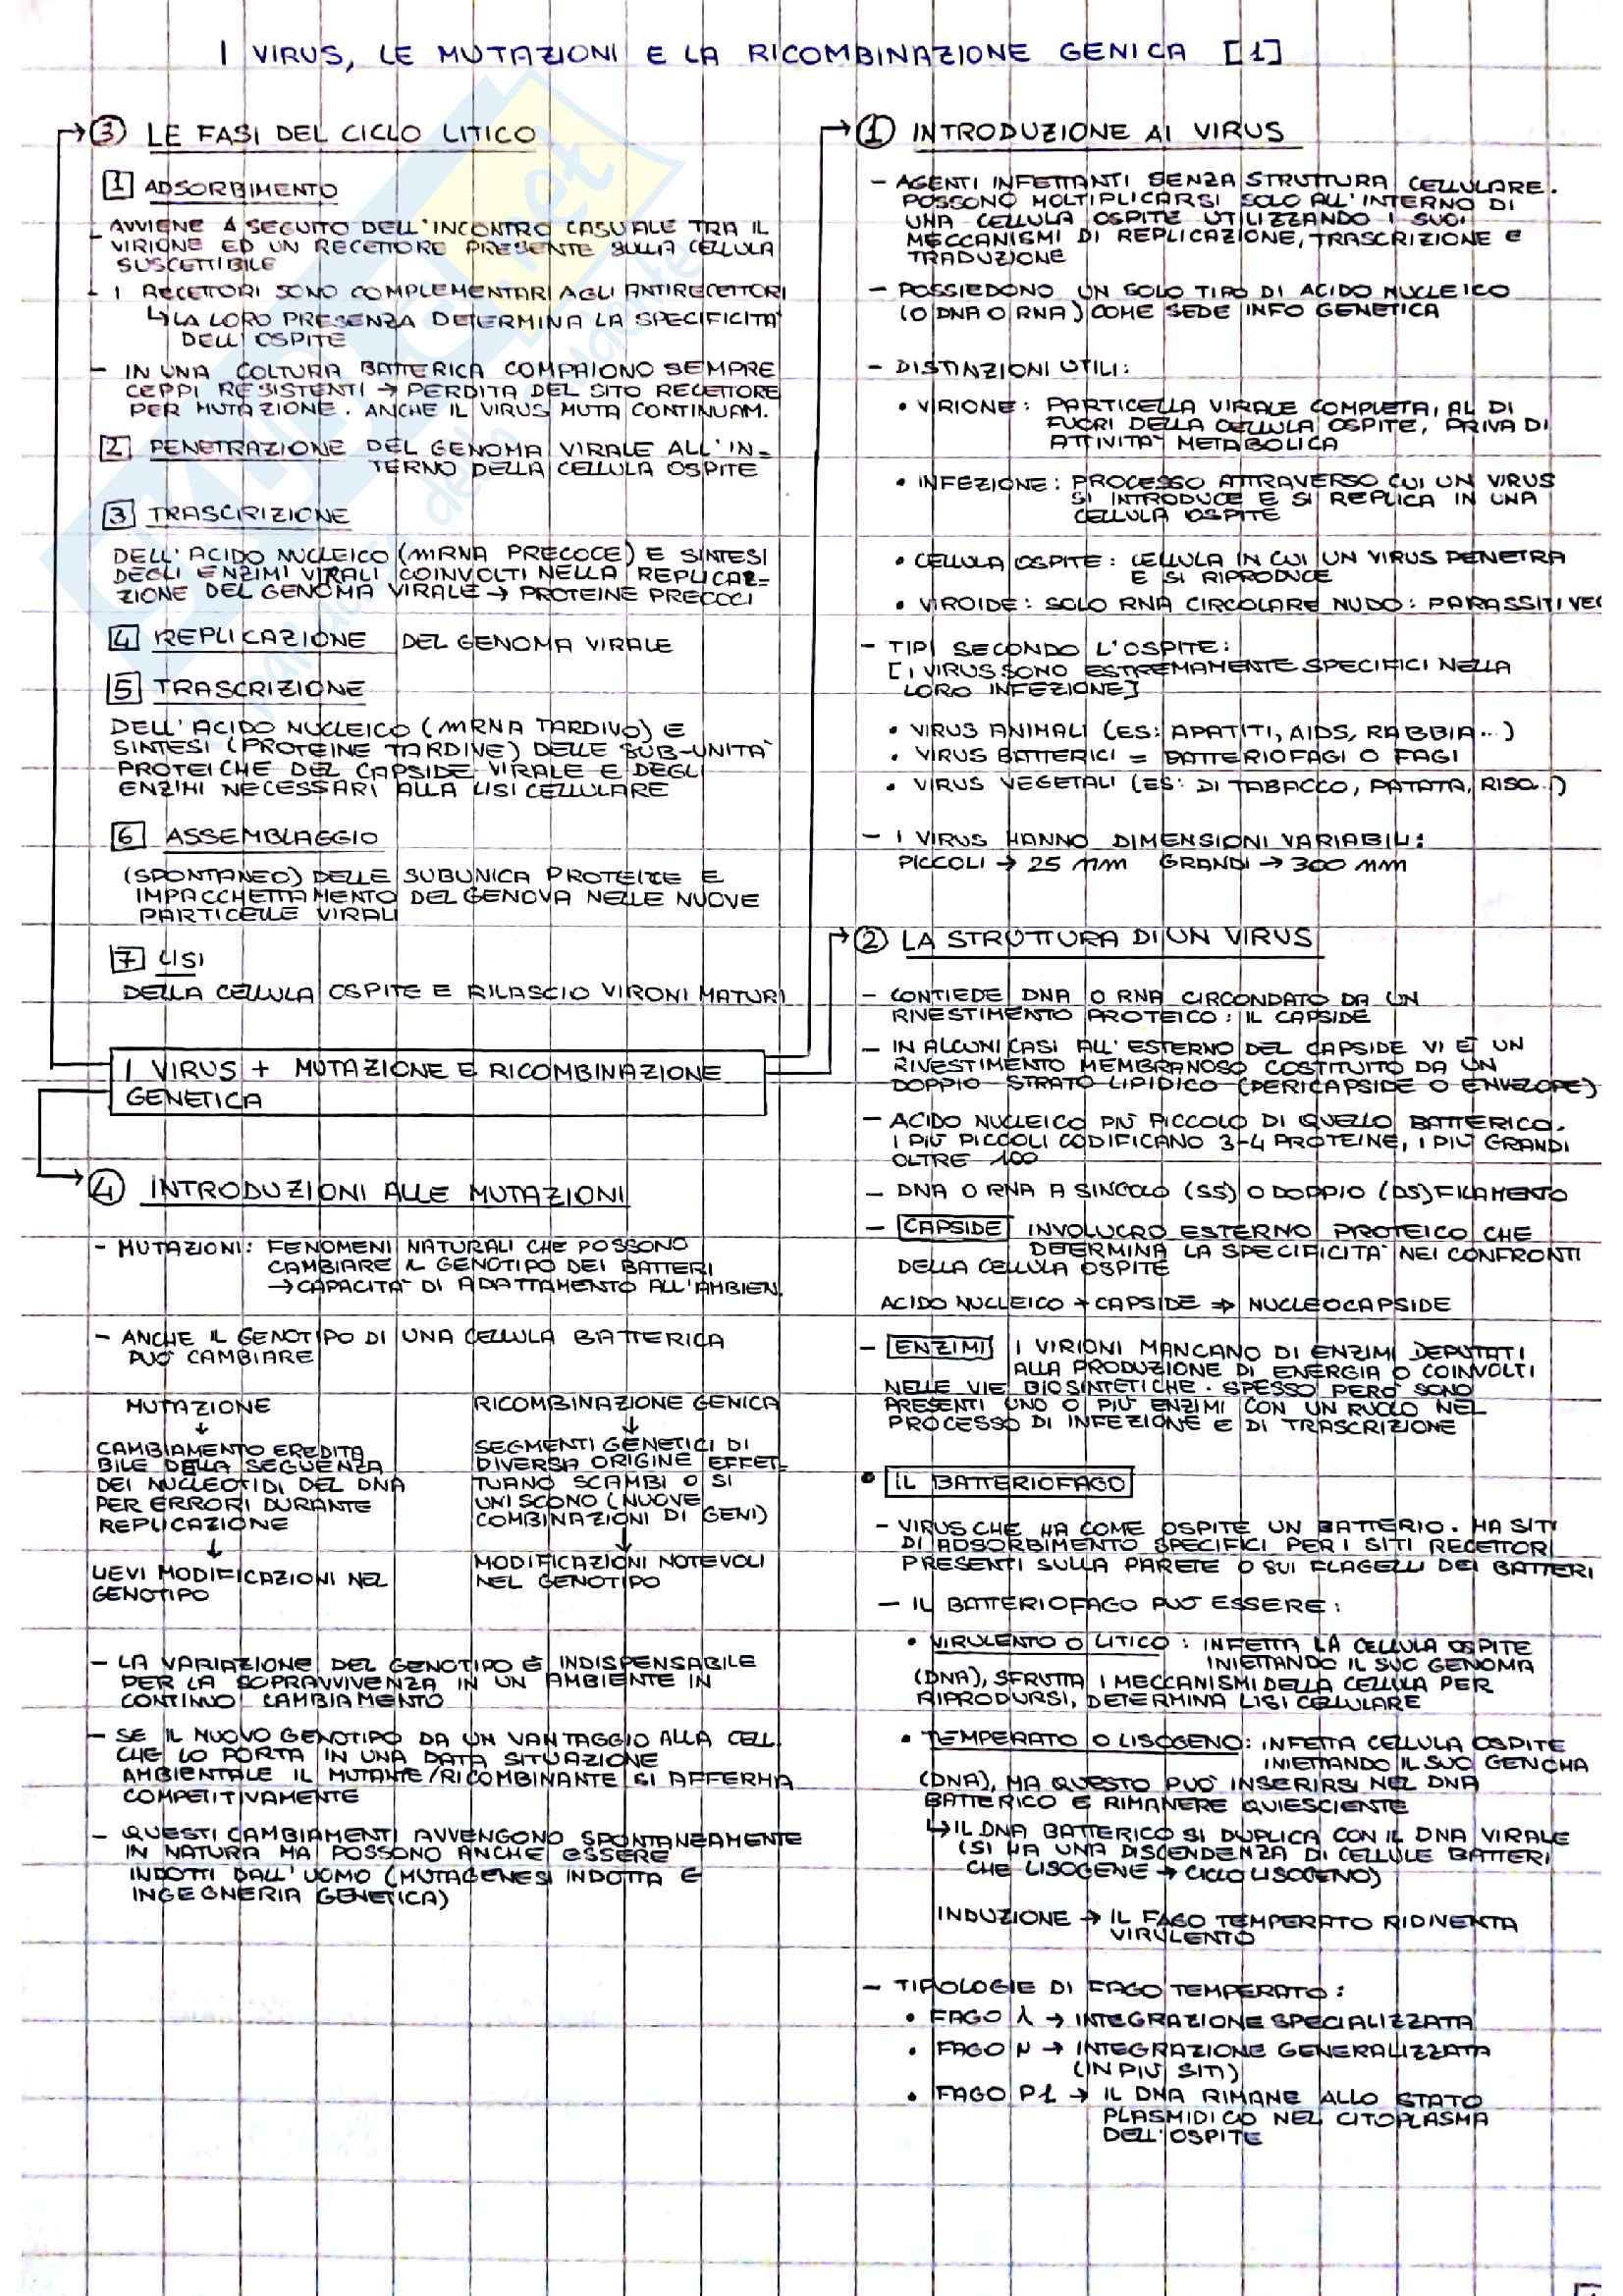 I VIRUS, LE MUTAZIONI E LA RICOMBINAZIONE GENICA [1]
③ LE FASI DEL CICLO LITICO
1 ADSORBIMENTO
- AVVIENE A SEGUITO DELL'INCONTRO CASUALE TRA IL
VIRIONE ED UN RECETTORE PRESENTE SULLA CELLULA
SUSCETTIBILE
- I RECETTORI SONO COMPLEMENTARI AGLI ANTIRECETTORI
↳ LA LORO PRESENZA DETERMINA LA SPECIFICITÀ
DELL'OSPITE
- IN UNA COLTURA BATTERICA COMPAIONO SEMPRE
CEPPI RESISTENTI → PERDITA DEL SITO RECETTORE
PER MUTAZIONE. ANCHE IL VIRUS MUTA CONTINUAM.
2 PENETRAZIONE DEL GENOMA VIRALE ALL'IN=
TERNO DELLA CELLULA OSPITE
3 TRASCRIZIONE
DELL'ACIDO NUCLEICO (mRNA PRECOCE) E SINTESI
DEGLI ENZIMI VIRALI COINVOLTI NELLA REPLICA=
ZIONE DEL GENOMA VIRALE → PROTEINE PRECOCI
4 REPLICAZIONE DEL GENOMA VIRALE
5 TRASCRIZIONE
DELL'ACIDO NUCLEICO (mRNA TARDIVO) E
SINTESI (PROTEINE TARDIVE) DELLE SUB-UNITÀ
PROTEICHE DEL CAPSIDE VIRALE E DEGLI
ENZIMI NECESSARI ALLA LISI CELLULARE
6 ASSEMBLAGGIO
(SPONTANEO) DELLE SUBUNICA PROTEICE E
IMPACCHETTAMENTO DEL GENOVA NELLE NUOVE
PARTICELLE VIRALI
7 LISI
DELLA CELLULA OSPITE E RILASCIO VIRONI MATURI
I VIRUS + MUTAZIONE E RICOMBINAZIONE
GENETICA
④ INTRODUZIONI ALLE MUTAZIONI
- MUTAZIONI: FENOMENI NATURALI CHE POSSONO
CAMBIARE IL GENOTIPO DEI BATTERI
→ CAPACITÀ DI ADATTAMENTO ALL'AMBIEN.
- ANCHE IL GENOTIPO DI UNA CELLULA BATTERICA
PUÒ CAMBIARE
MUTAZIONE
↓
CAMBIAMENTO EREDITA
BILE DELLA SEGUENZA
DEI NUCLEOTIDI DEL DNA
PER ERRORI DURANTE
REPLICAZIONE
↓
LIEVI MODIFICAZIONI NEL
GENOTIPO
RICOMBINAZIONE GENICA
↓
SEGMENTI GENETICI DI
DIVERSA ORIGINE EFFET-
TUANO SCAMBI O SI
UNISCONO (NUOVE
COMBINAZIONI DI GENI)
↓
MODIFICAZIONI NOTEVOLI
NEL GENOTIPO
- LA VARIAZIONE DEL GENOTIPO È INDISPENSABILE
PER LA SOPRAVVIVENZA IN UN AMBIENTE IN
CONTINUO CAMBIAMENTO
- SE IL NUOVO GENOTIPO DA UN VANTAGGIO ALLA CELL.
CHE LO PORTA IN UNA DATA SITUAZIONE
AMBIENTALE IL MUTANTE/RICOMBINANTE SI AFFERMA
COMPETITIVAMENTE
- QUESTI CAMBIAMENTI AVVENGONO SPONTANEAMENTE
IN NATURA MA POSSONO ANCHE ESSERE
INDOTTI DALL'UOMO (MUTAGENESI INDOTTA E
INGEGNERIA GENETICA)
① INTRODUZIONE AI VIRUS
- AGENTI INFETTANTI SENZA STRUTTURA CELLULARE.
POSSONO MOLTIPLICARSI SOLO ALL'INTERNO DI
UNA CELLULA OSPITE UTILIZZANDO I SUOI
MECCANISMI DI REPLICAZIONE, TRASCRIZIONE E
TRADUZIONE
- POSSIEDONO UN SOLO TIPO DI ACIDO NUCLEICO
(O DNA O RNA) COME SEDE INFO GENETICA
- DISTINZIONI UTILI:
• VIRIONE: PARTICELLA VIRALE COMPLETA, AL DI
FUORI DELLA CELLULA OSPITE, PRIVA DI
ATTIVITÀ METABOLICA
• INFEZIONE: PROCESSO ATTRAVERSO CUI UN VIRUS
SI INTRODUCE E SI REPLICA IN UNA
CELLULA OSPITE
• CELLULA OSPITE: CELLULA IN CUI UN VIRUS PENETRA
E SI RIPRODUCE
• VIROIDE: SOLO RNA CIRCOLARE NUDO: PARASSITI VEG
- TIPI SECONDO L'OSPITE:
[I VIRUS SONO ESTREMAMENTE SPECIFICI NELLA
LORO INFEZIONE]
• VIRUS ANIMALI (ES: APATITI, AIDS, RABBIA...)
• VIRUS BATTERICI = BATTERIOFAGI O FAGI
• VIRUS VEGETALI (ES: DI TABACCO, PATATA, RISO...)
- I VIRUS HANNO DIMENSIONI VARIABILI:
PICCOLI → 25 nm GRANDI → 300 nm
② LA STRUTTURA DI UN VIRUS
- CONTIEDE DNA O RNA CIRCONDATO DA UN
RIVESTIMENTO PROTEICO: IL CAPSIDE
- IN ALCUNI CASI ALL'ESTERNO DEL CAPSIDE VI È UN
RIVESTIMENTO MEMBRANOSO COSTITUITO DA UN
DOPPIO STRATO LIPIDICO (PERICAPSIDE O ENVELOPE)
- ACIDO NUCLEICO PIÙ PICCOLO DI QUELLO BATTERICO.
I PIÙ PICCOLI CODIFICANO 3-4 PROTEINE, I PIÙ GRANDI
OLTRE 100
- DNA O RNA A SINGOLO (SS) O DOPPIO (DS) FILAMENTO
- CAPSIDE INVOLUCRO ESTERNO PROTEICO CHE
DETERMINA LA SPECIFICITÀ NEI CONFRONTI
DELLA CELLULA OSPITE
ACIDO NUCLEICO + CAPSIDE ⇒ NUCLEOCAPSIDE
- ENZIMI I VIRIONI MANCANO DI ENZIMI DEPUTATI
ALLA PRODUZIONE DI ENERGIA O COINVOLTI
NELLE VIE BIOSINTETICHE. SPESSO PERÒ SONO
PRESENTI UNO O PIÙ ENZIMI CON UN RUOLO NEL
PROCESSO DI INFEZIONE E DI TRASCRIZIONE
• IL BATTERIOFAGO
- VIRUS CHE HA COME OSPITE UN BATTERIO. HA SITI
DI ADSORBIMENTO SPECIFICI PER I SITI RECETTORI
PRESENTI SULLA PARETE O SUI FLAGELLI DEI BATTERI
- IL BATTERIOFAGO PUÒ ESSERE:
• VIRULENTO O LITICO: INFETTA LA CELLULA OSPITE
INIETTANDO IL SUO GENOMA
(DNA), SFRUTTA I MECCANISMI DELLA CELLULA PER
RIPRODURSI, DETERMINA LISI CELLULARE
• TEMPERATO O LISOGENO: INFETTA CELLULA OSPITE
INIETTANDO IL SUO GENOMA
(DNA), MA QUESTO PUÒ INSERIRSI NEL DNA
BATTERICO E RIMANERE QUIESCIENTE
↳ IL DNA BATTERICO SI DUPLICA CON IL DNA VIRALE
(SI HA UNA DISCENDENZA DI CELLULE BATTERI
CHE LISOGENE → CICLO LISOGENO)
INDUZIONE → IL FAGO TEMPERATO RIDIVENTA
VIRULENTO
- TIPOLOGIE DI FAGO TEMPERATO:
• FAGO λ → INTEGRAZIONE SPECIALIZZATA
• FAGO μ → INTEGRAZIONE GENERALIZZATA
(IN PIÙ SITI)
• FAGO P1 → IL DNA RIMANE ALLO STATO
PLASMIDICO NEL CITOPLASMA
DELL'OSPITE